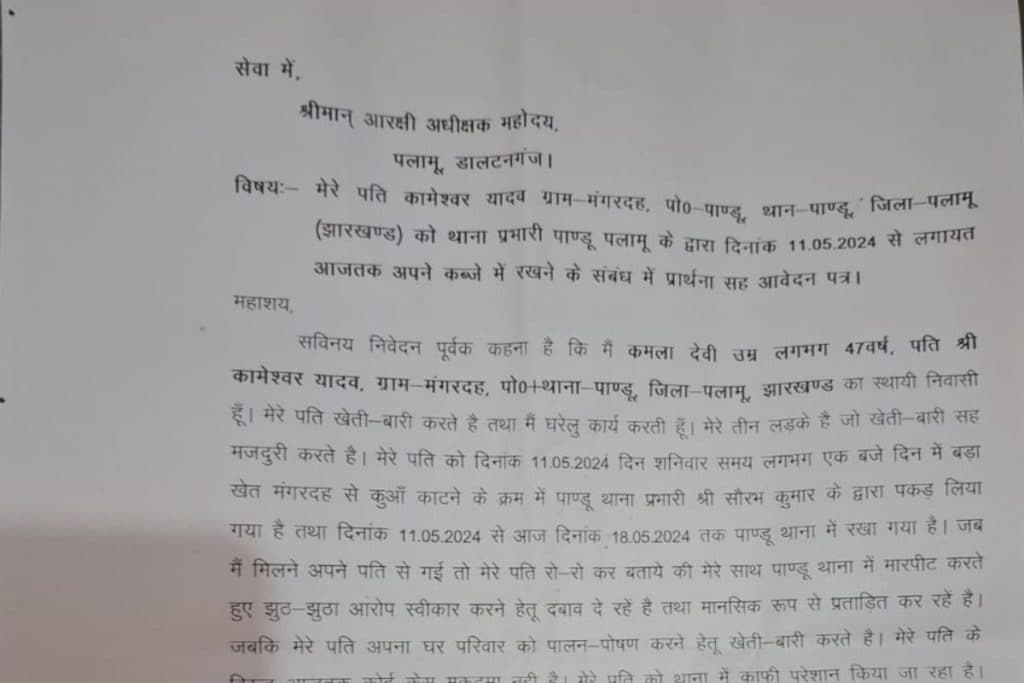 सेवा में,
श्रीमान् आरक्षी अधीक्षक महोदय,
पलामू, डालटनगंज।
विषयः- मेरे पति कामेश्वर यादव ग्राम-मंगरदह, पो0-पाण्डू, थान-पाण्डू, जिला-पलामू
(झारखण्ड) को थाना प्रभारी पाण्डू पलामू के द्वारा दिनांक 11.05.2024 से लगायत
आजतक अपने कब्जे में रखने के संबंध में प्रार्थना सह आवेदन पत्र।
महाशय,
सविनय निवेदन पूर्वक कहना है कि मैं कमला देवी उम्र लगभग 47वर्ष, पति श्री
कामेश्वर यादव, ग्राम-मंगरदह, पो0+थाना-पाण्डू, जिला-पलामू, झारखण्ड का स्थायी निवासी
हूँ। मेरे पति खेती-बारी करते है तथा मैं घरेलु कार्य करती हूँ। मेरे तीन लड़के है जो खेती-बारी सह
मजदुरी करते है। मेरे पति को दिनांक 11.05.2024 दिन शनिवार समय लगभग एक बजे दिन में बड़ा
खेत मंगरदह से कुआँ काटने के क्रम में पाण्डू थाना प्रभारी श्री सौरभ कुमार के द्वारा पकड़ लिया
गया है तथा दिनांक 11.05.2024 से आज दिनांक 18.05.2024 तक पाण्डू थाना में रखा गया है। जब
मैं मिलने अपने पति से गई तो मेरे पति रो-रो कर बताये की मेरे साथ पाण्डू थाना में मारपीट करते
हुए झुठ-झुठा आरोप स्वीकार करने हेतू दबाव दे रहें है तथा मानसिक रूप से प्रताड़ित कर रहें है।
जबकि मेरे पति अपना घर परिवार को पालन-पोषण करने हेतू खेती-बारी करते है। मेरे पति के
आजतक कोई केस मुकदमा नही है। मेरे पति को थाना में काफी परेशान किया जा रहा है।